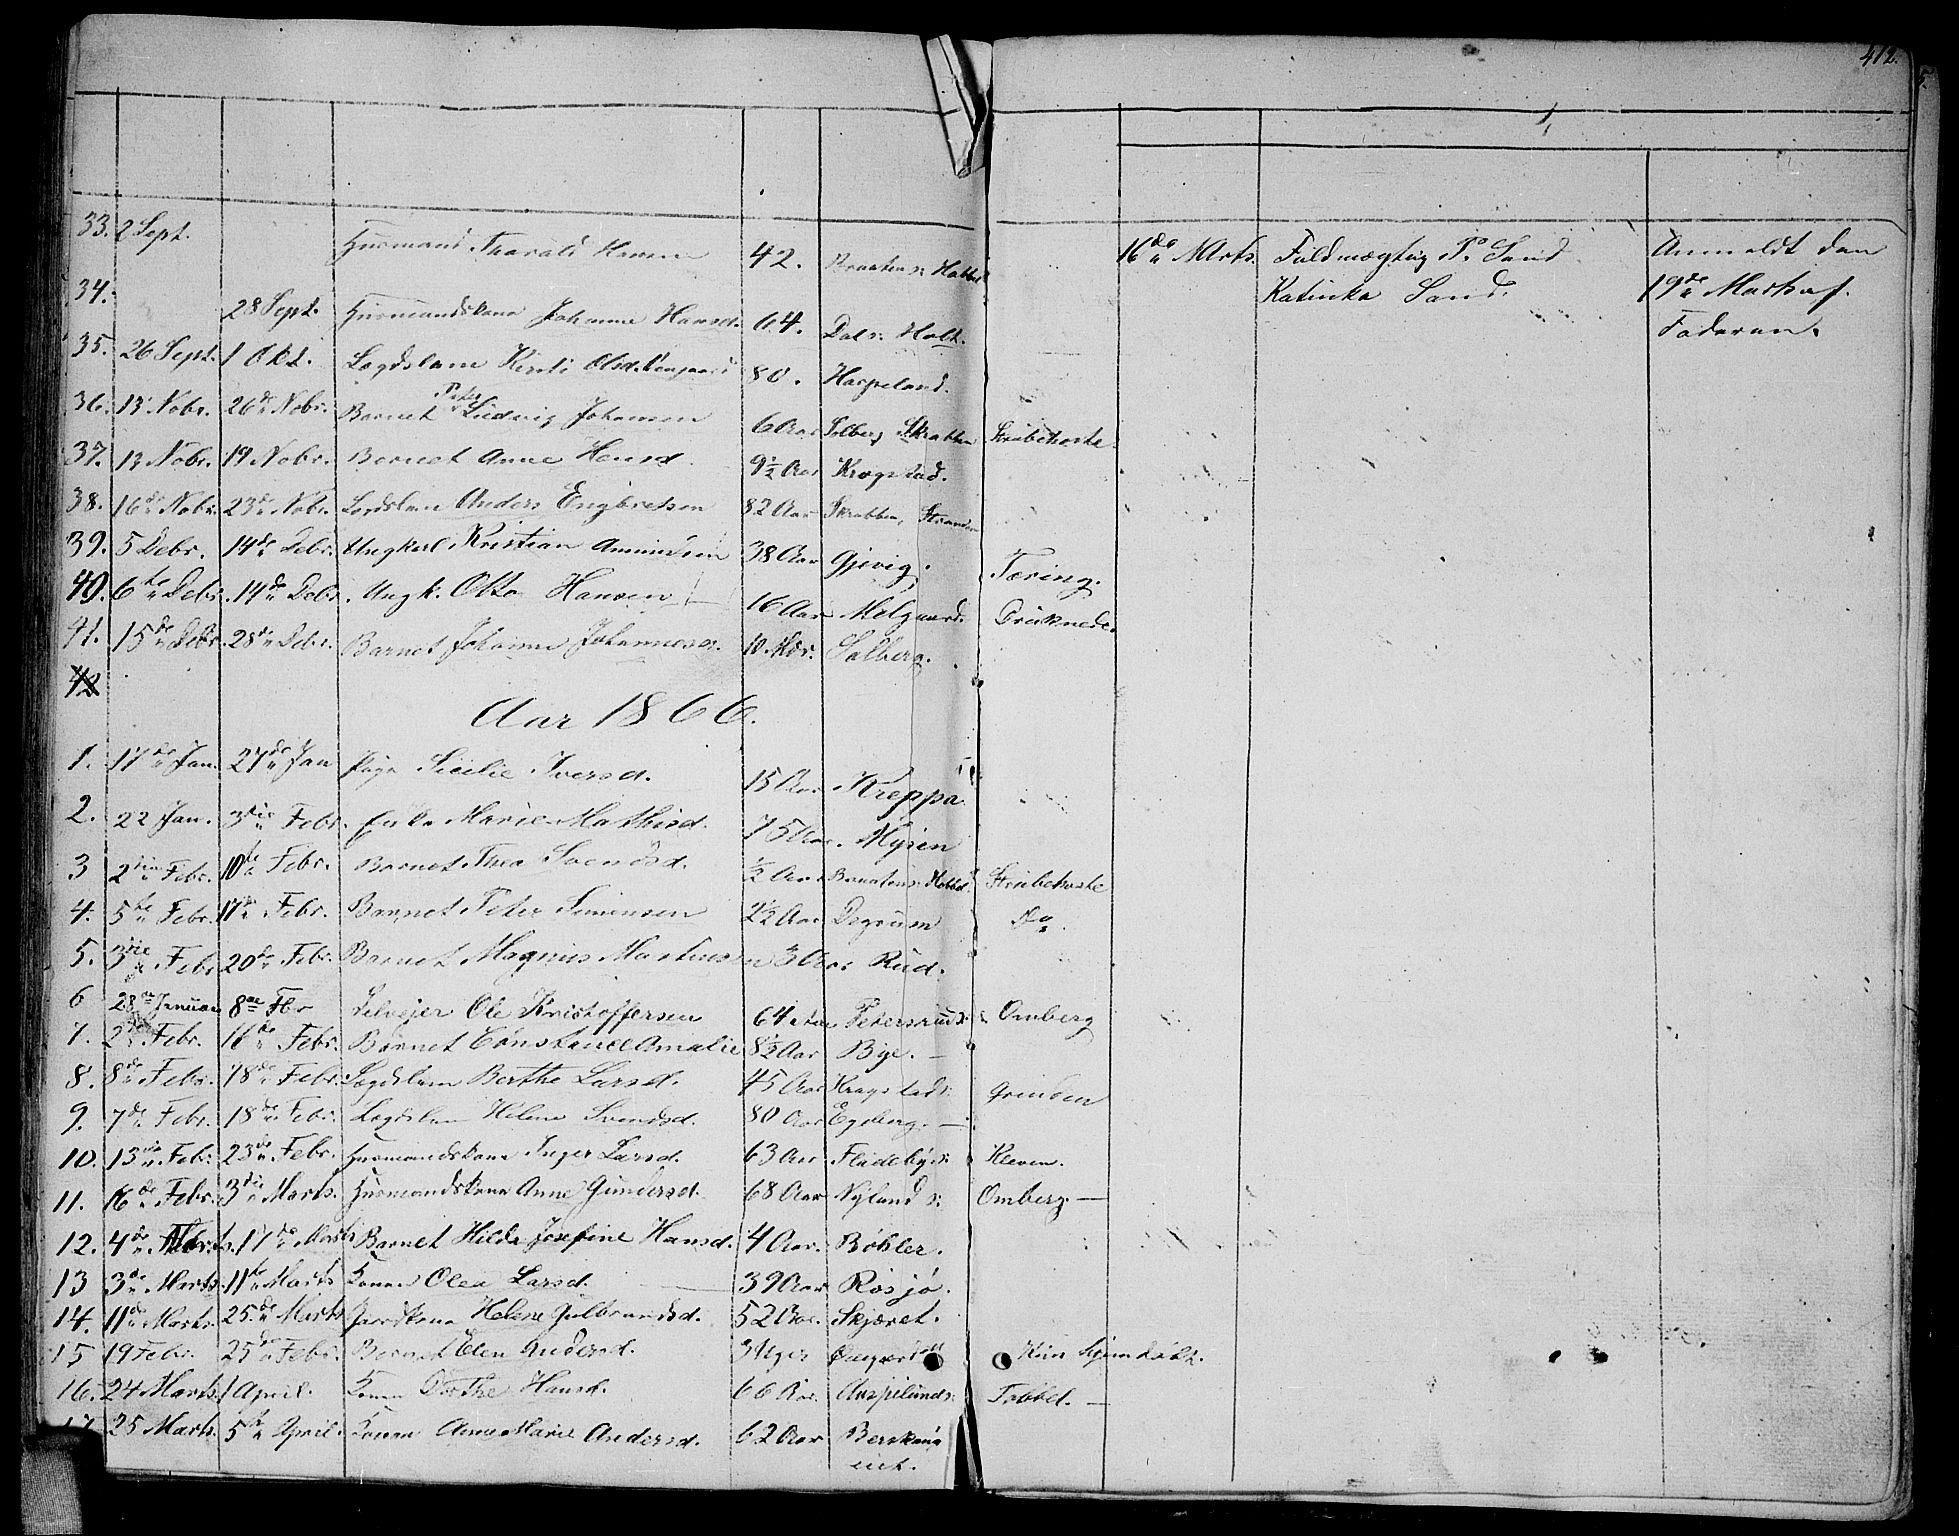 412.
5.
33. 2 Sept. Husmand Tharald Hansen 42. Braaten u: Hobbel
16de Marts. Fuldmægtig P. Sand Anmeldt den
34. 28 Sept. Husmandskone Johanne Hansd. 64. Dal u: Holt.
Katinka Sand. 19de Marts af
Faderen.
35. 26 Sept. 1 Okt. Lægdslem Kirsti Olsd. 80. Haspeland.
36. 13 Nobr. 26de Nobr. Barnet Peter Ludvig Johansen 6 Aar Solberg Skrabben Strubehoste
37. 13 Nobr. 19 Nobr. Barnet Anne Hansd. 9½ Aar Kragstad.
38. 16de Nobr. 23de Nobr. Lægdslem Anders Engbretsen 82 Aar Skrabben, Stranden
39. 5 Debr. 14de Debr. Ungkarl Kristian Amundsen 38 Aar Gjevig. Tæring.
40. 6te Debr. 14de Debr. Ungk. Otto Hansen 16 Aar Melgaard. Druknede.
41. 15de Debr. 28de Debr. Barnet Johanne Johannesd. 10 Mdr. Solberg.
42
Aar 1866.
1. 17de Jan. 27de Jan Pige Sicilie Iversd. 15 Aar Kreppa
2. 22 Jan. 3die Febr. Enke Marie Mathisd. 75 Aar. Myren
3 2den Febr. 10te Febr. Barnet Thea Svendsd. ½ Aar Braaten u: Hobbel Strubehoste
4. 5te Febr. 17de Febr. Barnet Peter Simensen 2½ Aar Degrum Do.
5. 3die Febr 20de Febr. Barnet Magnus Martinsen 3 Aar Rud.
6 28de Januar 8de Fbr Selvejer Ole Kristoffersen 64 Aar Petersrud u: Omberg
7. 2den Febr. 16de Febr. Barnet Constance Amalie 8½ Aar Bye. —
8. 8de Febr. 18de Febr. Lægdslem Berthe Larsd. 45 Aar Kragstad u: Grenden
9. 7de Febr. 18de Febr. Lægdslem Helene Svendsd. 80 Aar Egeberg. —
10. 13de Feb. 23de Febr. Husmandskone Inger Larsd. 63 Aar Fladeby u: Kleven.
11. 16de Febr. 3die Marts. Husmandskone Anne Gundersd. 68 Aar Nyland u: Omberg —
12. 4de Marts. 17de Marts Barnet Hilda Josefine Hansd. 4 Aar. Bøhler.
13 3de Marts. 11te Marts Konen Olea Larsd. — 39 Aar Røsjø.
14. 11de Marts. 25de Marts Gaardkone Helene Gulbrandsd. 52 Aar. Skjæret.
15 19 Febr. 25de Febr. Barnet Elen Andersd. 3 Uger Kun hjemdøbt.
16. 24 Marts. 1 April. Konen Dorthe Hansd. 66 Aar. Haspelund u: Tobbel. —
17 25 Marts. 5te April. Konen Anne Marie Andersd. 62 Aar